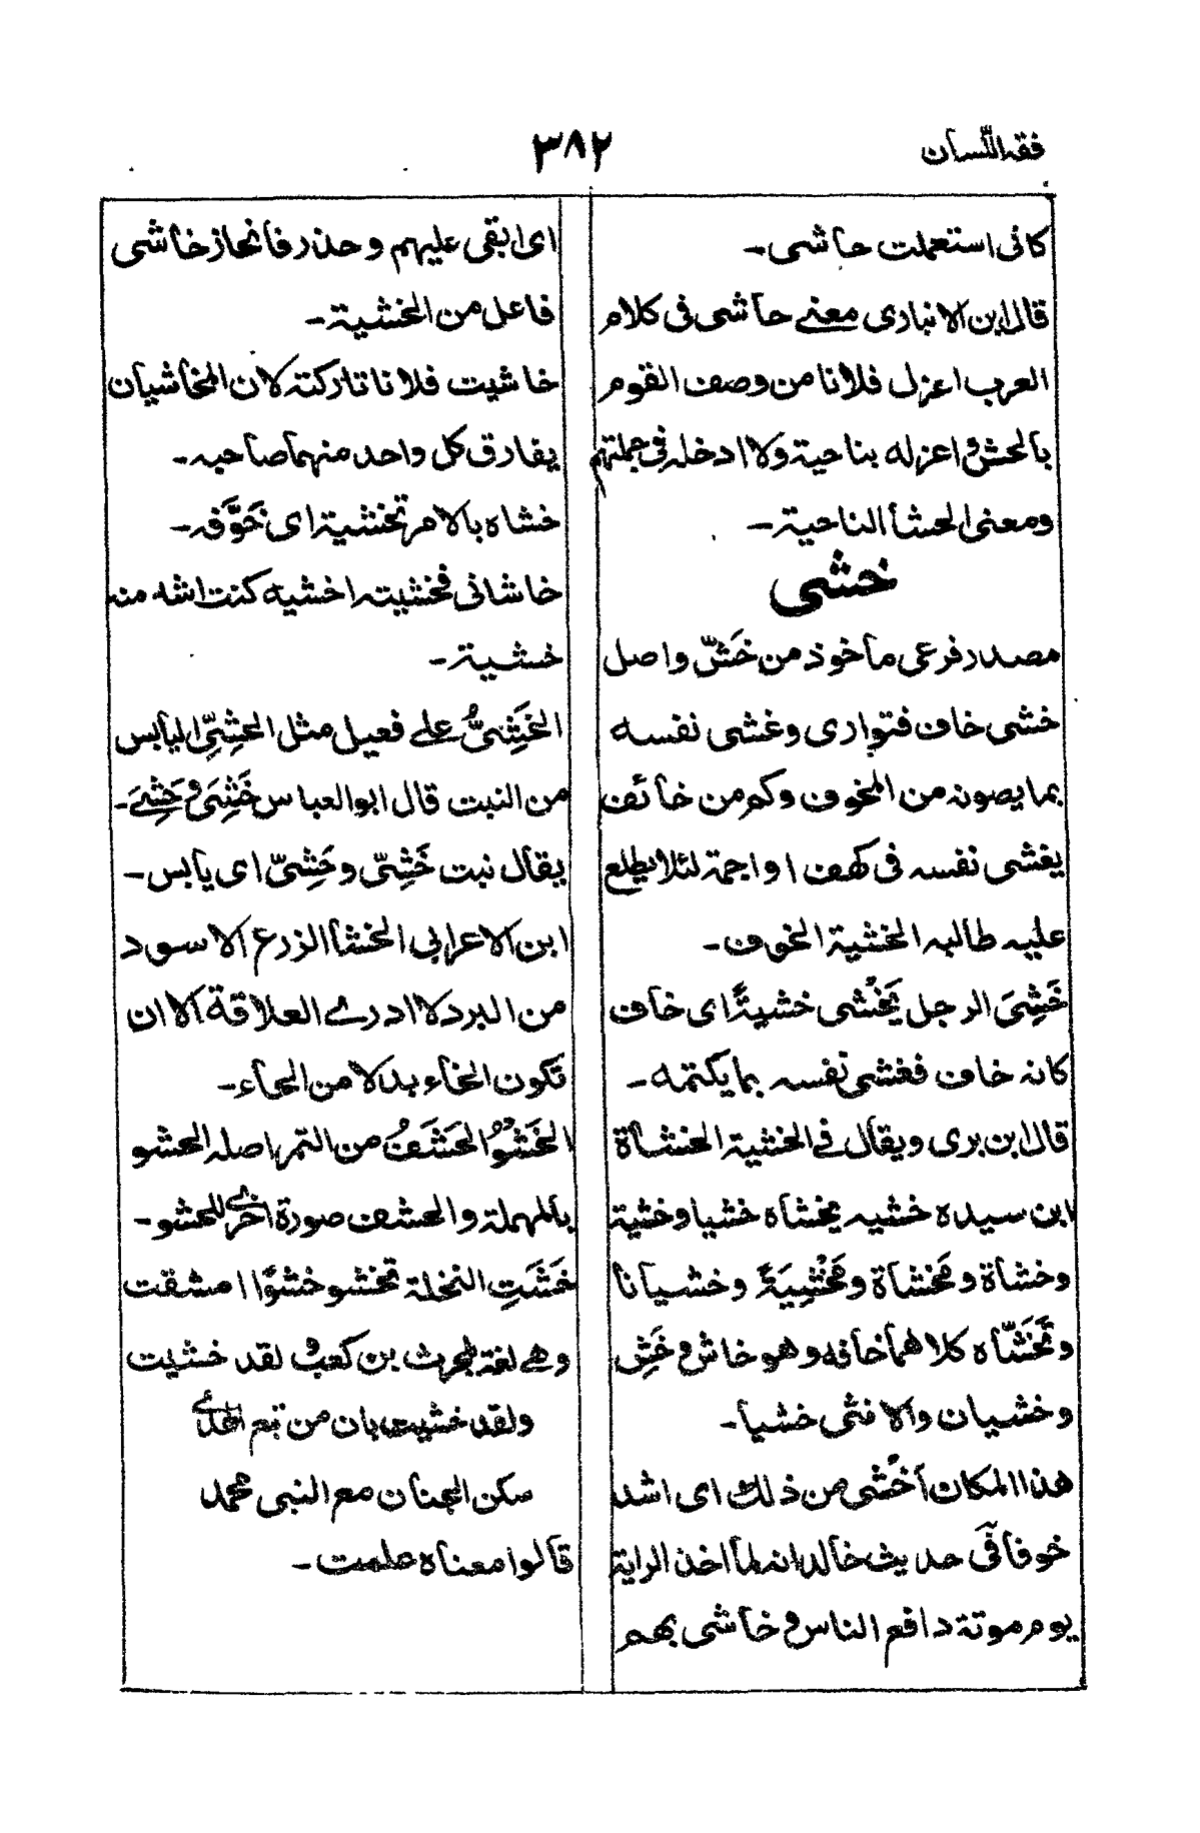 فقه اللّسان
٣٨٢
كانی استعملت حاشی۔
قال ابن الانباری معنے حاشی فی كلام
العرب اعزل فلانا من وصف القوم
بالحش و اعزله بناحیة ولا ادخله فی جملتهم
ومعنی الحشأ الناحیة۔
خشی
مصدر فرعی مأخوذ من خَشّ واصل
خشی خاف فتواری وغشی نفسه
بما یصونه من المخوف وكم من خائف
یغشی نفسه فی كهف او اجمة لئلا یطلع
علیه طالبه الخشیة الخوف۔
خَشِیَ الرجل یَخْشی خشیةً ای خاف
كانه خاف فغشی نفسه بما یكتمه۔
قال ابن بری ویقال فے الخشیة الخشاة
ابن سیده خشیه یخشاه خشیا وخشیة
وخشاة ومخشاة ومَخْشِیَةً وخشیانا
وتَخَشّاه كلاهما خافه وهو خاش و خَشٍ
وخشیان والانثی خشیا۔
هذا المكان أخْشی من ذلك ای اشد
خوفا فی حدیث خالد انه لما اخذ الرایة
یوم موتة دافع الناس و خاشی بهم
ای ابقی علیهم وحذر فانحاز خاشی
فاعل من الخشیة۔
خاشیت فلانا تاركته لان المخاشیان
یفارق كل واحد منهما صاحبه۔
خشاه بالامر تخشیة ای خَوَّفه۔
خاشانی فخشیته اخشیه كنت اشد منه
خشیة۔
الخَشِیُّ علے فعیل مثل الحشِیِّ الیابس
من النبت قال ابو العباس خَشِیَ و حَشِےَ۔
یقال نبت خَشِیّ وحَشِیّ ای یابس۔
ابن الاعرابی الخشأ الزرع الاسود
من البرد لا ادرے العلاقة الا ان
تكون الخاء بدلا من الحاء۔
الخَشْوُ الحَشَفُ من التمر اصله الحشو
بالمهملة والحشف صورة اخرے للحشو۔
خَشَتِ النخلة تخشو خشوًا امشقت
وهے لغة بلحرث بن كعب و لقد خشیت
ولقد خشیت بان من تبع الهدے
سكن الجنان مع النبی محمد
قالوا معناه علمت۔